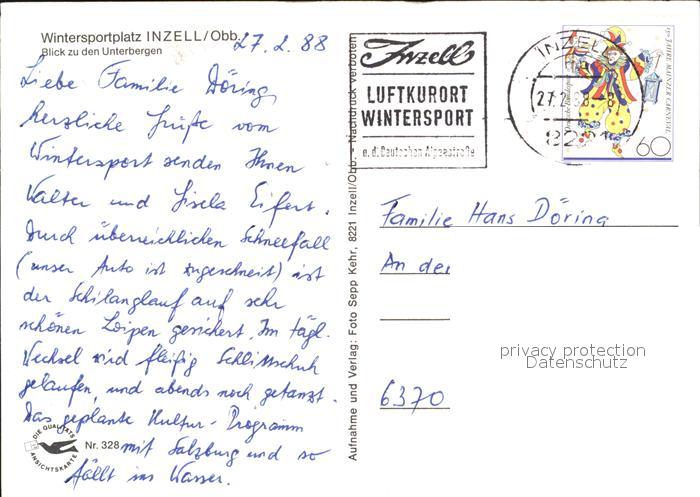 Wintersportplatz INZELL/Obb.
Blick zu den Unterbergen
27.2.88
Liebe Familie Döring,
herzliche Grüße vom
Wintersport senden Ihnen
Walter und Gisela Eifert.
Durch überreichlichen Schneefall
(unser Auto ist zugeschneit) ist
der Schilanglauf auf sehr
schönen Loipen gesichert. Im tägl.
Wechsel wird fleißig Schlittschuh
gelaufen, und abends noch getanzt.
Das geplante Kultur-Programm
mit Salzburg und so
fällt ins Wasser.
DIE QUALITÄTS
ANSICHTSKARTE
Nr. 328
Aufnahme und Verlag: Foto Sepp Kehr, 8221 Inzell/Obb. - Nachdruck verboten
Inzell
LUFTKURORT
WINTERSPORT
a.d. Deutschen Alpenstraße
INZELL
27.2.88-8
822
150 JAHRE MAINZER CARNEVAL
Deutsche Bundespost
60
Familie Hans Döring
An der
6370
privacy protection
Datenschutz